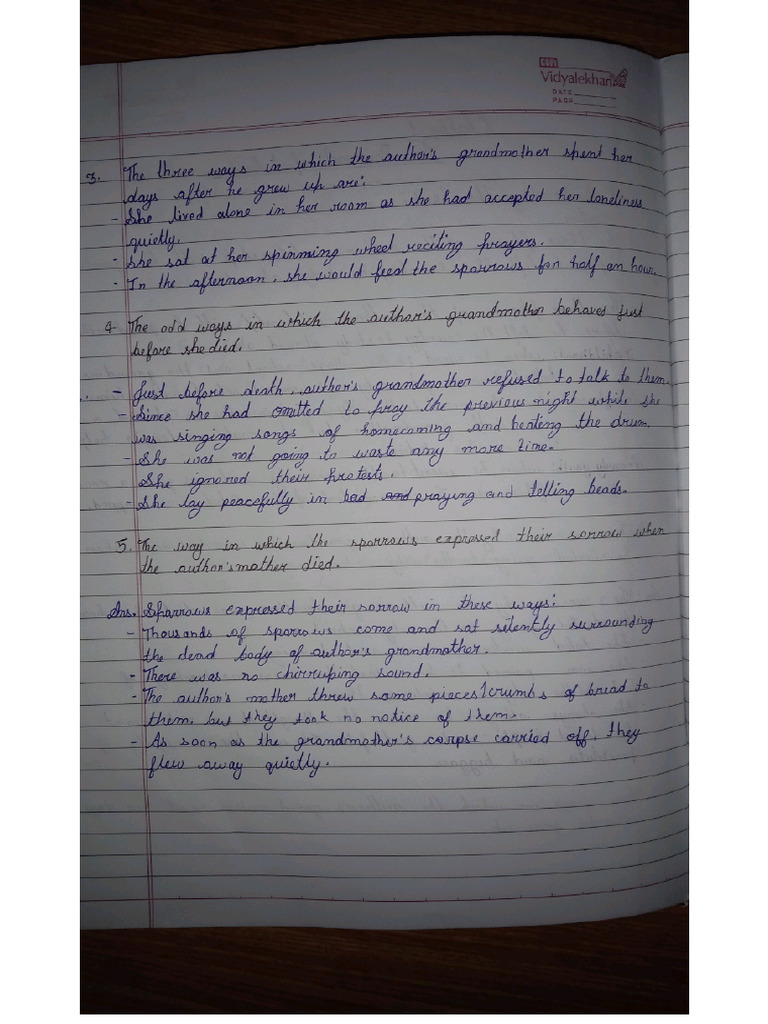 Vidyalekhan
DATE
PAGE
3. The three ways in which the author's grandmother spent her
days after he grew up are:
- She lived alone in her room as she had accepted her loneliness
quietly.
- She sat at her spinming wheel reciting prayers.
- In the afternoon, she would feed the sparrows for half an hour.
4- The odd ways in which the author's grandmother behaves just
before she died.
- Just before death, author's grandmother refused to talk to them.
- Since she had omitted to pray the previous night while she
was singing songs of homecoming and beating the drum.
- She was not going to waste any more time.
She ignored their protests.
- She lay peacefully in bad and praying and telling beads.
5. The way in which the sparrows expressed their sorrow when
the author's mother died.
Ans. Sparrows expressed their sorrow in these ways:
- Thousands of sparrows come and sat silently surrounding
the dead body of author's grandmother.
- There was no chirruping sound.
- The author's mother threw some pieces/crumbs of bread to
them, but they took no notice of them.
- As soon as the grandmother's corpse carried off, they
flew away quietly.